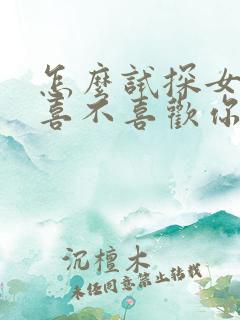 怎麼試探女
喜不喜歡你
沉檀木
未任同意禁止转载